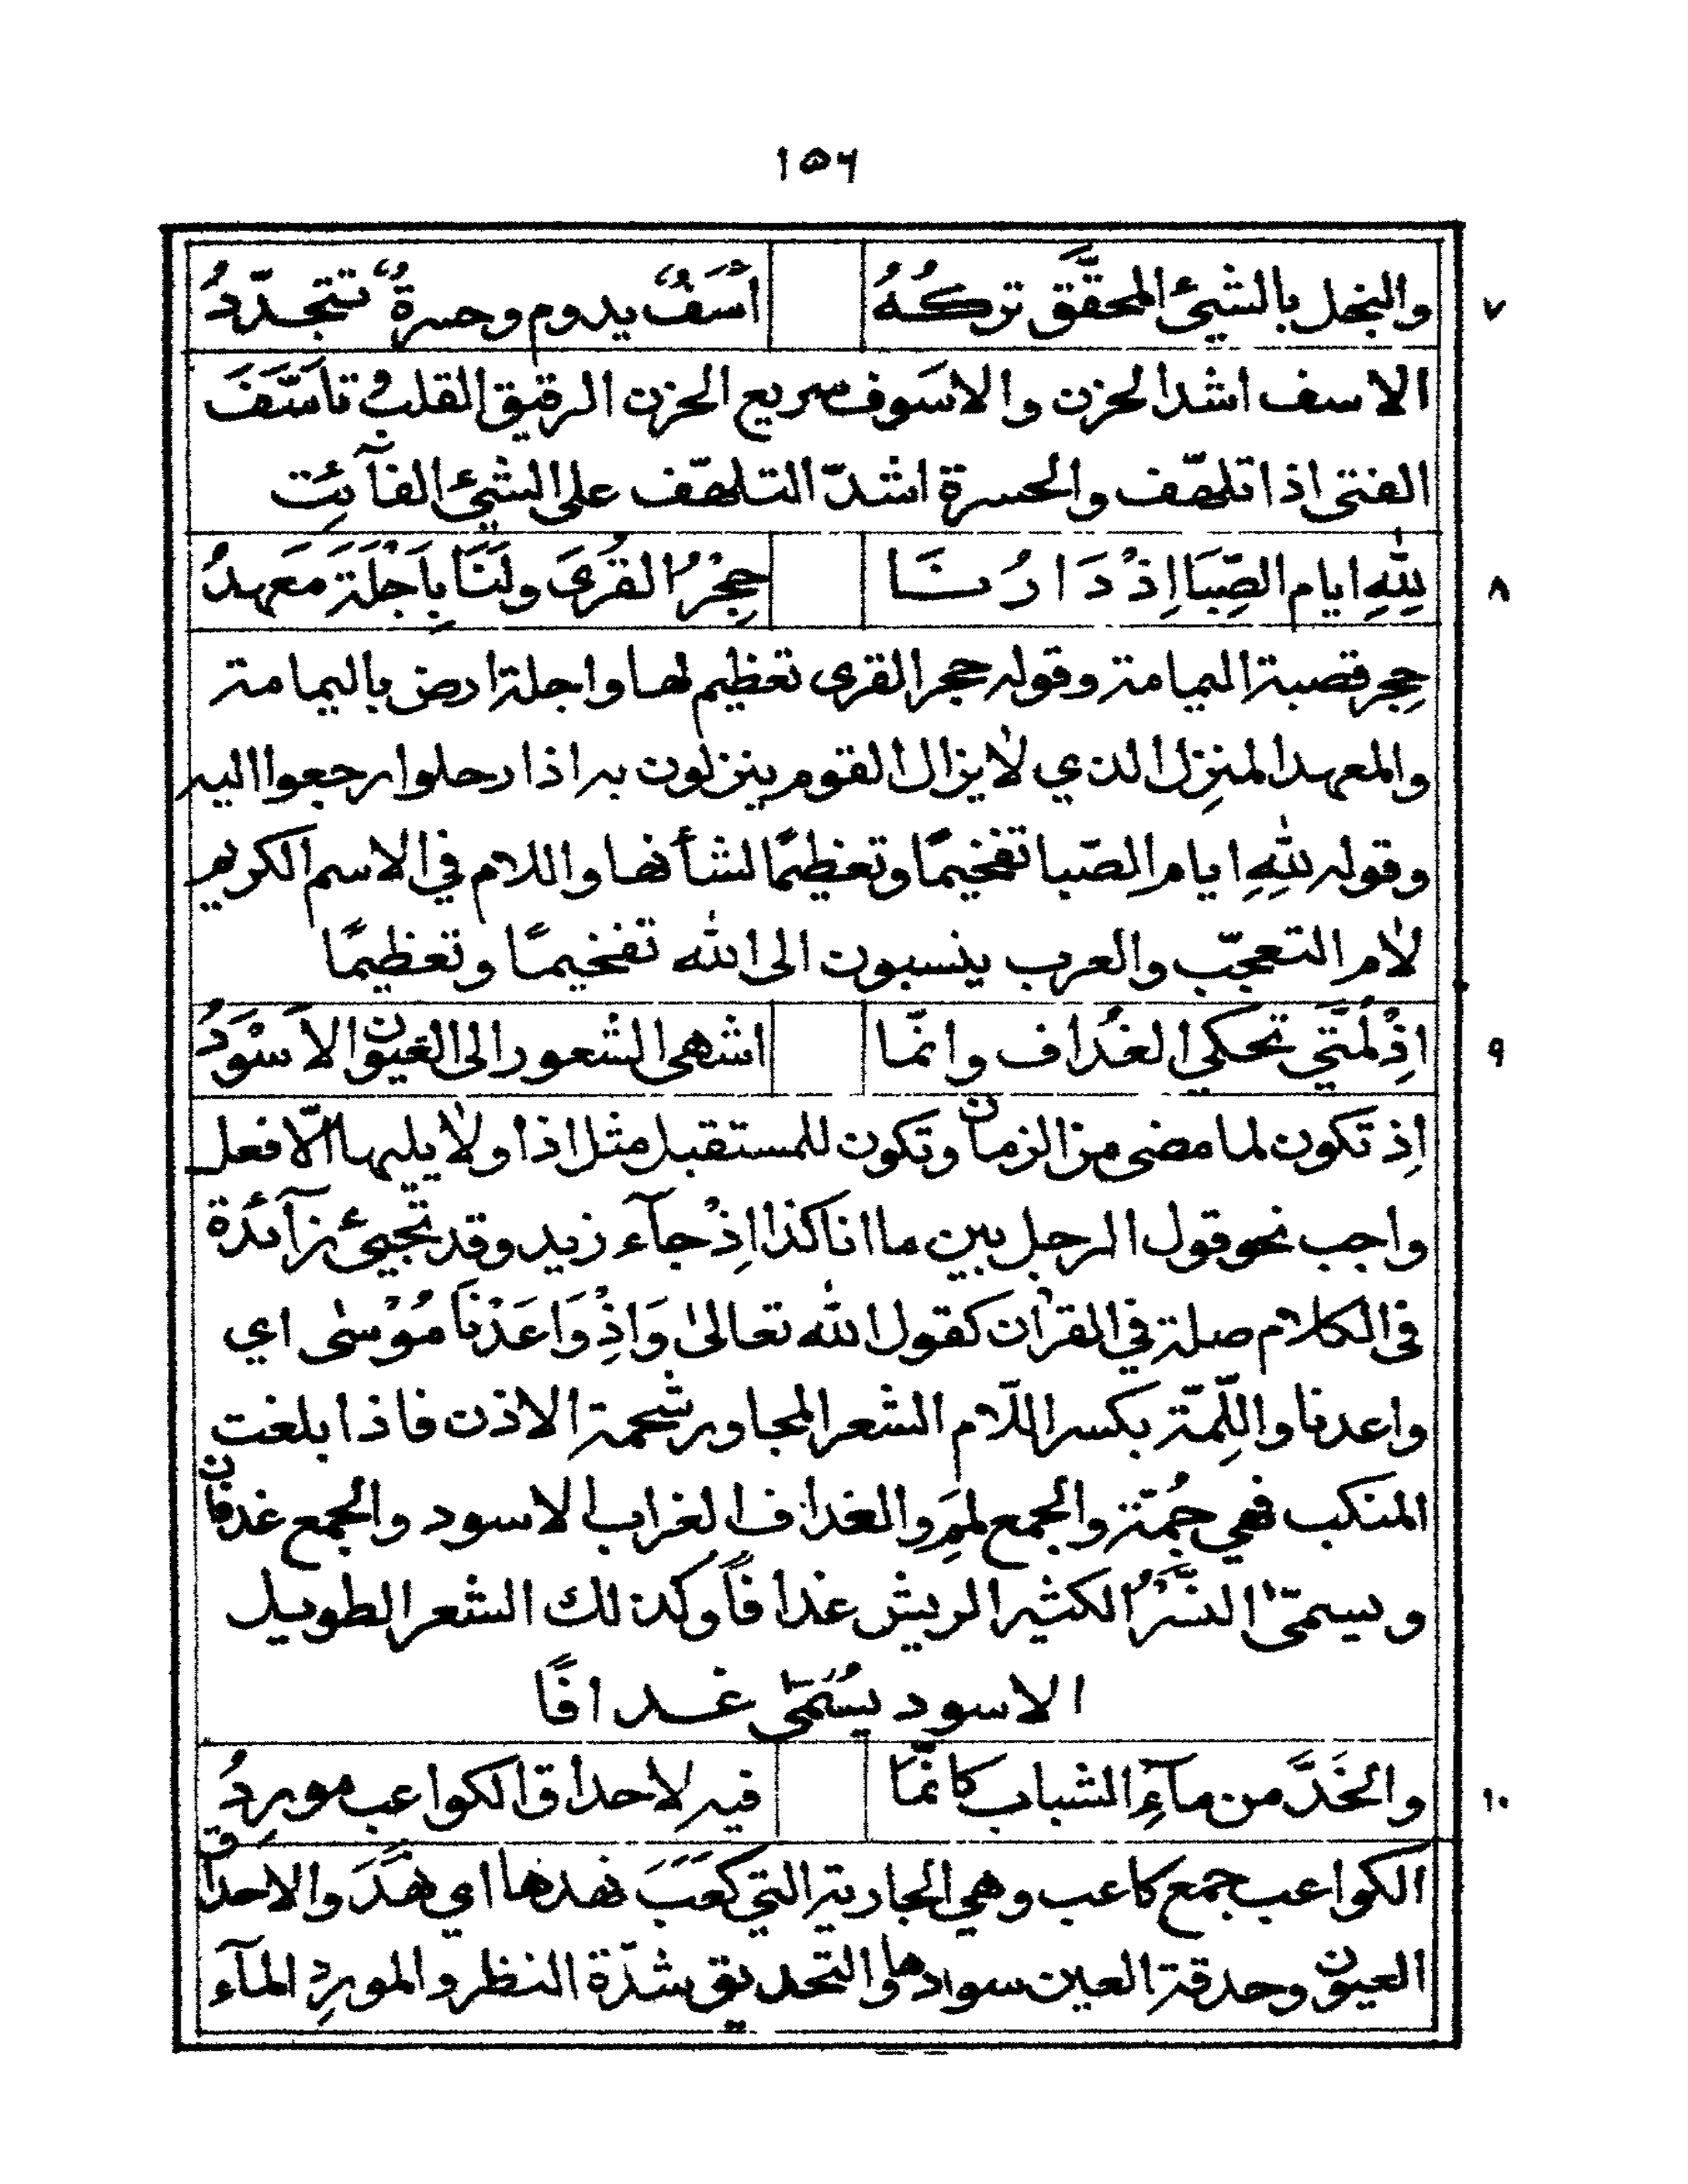 ١٥٦
٧ والبخل بالشيئ المحقَّق تركُهُ اَسَفٌ يدوم وحسرةٌ تتجدّدُ
الاسف اشد الحزن والاسَوف سريع الحزن الرقيق القلب وتاَسَّفَ
الفتى اذا تلهّف والحسرة اشدّ التلهّف على الشيئ الفآئِت
٨ لِلّٰهِ ايام الصِّبَا اِذْ دَارُنَا حِجْرُ القُرَى ولَنَا بِاَجْلَةَ مَعهدُ
حِجر قصبة اليمامة وقوله حجر القرى تعظيم لها واجلة ارض باليمامة
والمعهد المنزِل الذي لا يزال القوم ينزلون به اذا رحلوا رجعوا اليه
وقوله لِلّٰهِ ايام الصّبا تفخيمًا وتعظيمًا لشأنها واللام في الاسم الكريم
لام التعجّب والعرب ينسبون الى الله تفخيمًا وتعظيمًا
٩ اِذْ لَمَّتي تحكي الغُداف وانّما اشهى الشعور الى العيون الاَسْوَدُ
اِذ تكون لما مضى من الزمان وتكون للمستقبل مثل اذا ولا يليها الّا فعل
واجب نحو قول الرجل بين ما انا كذا اِذْ جآء زيد وقد تجيئ زآئدة
فى الكلام صلة في القرآن كقول الله تعالىٰ وَاِذْ وَاعَدْنَا مُوْسٰى اي
واعدنا واللِّمّة بكسر اللّام الشعر المجاور شحمة الاذن فاذا بلغت
المنكب فهي جُمّة والجمع لمِم والغداف الغراب الاسود والجمع غدفان
ويسمّى النَّسْرُ الكثير الريش غدافًا وكذلك الشعر الطويل
الاسود يُسَمّى غدافًا
١٠ والخَدَّ من مآءِ الشباب كانَّمَا فيه لاحداق الكواعب مورِدُ
الكواعب جمع كاعب وهي الجارية التي كَعَبَ نهدها اي نهَّدَ والاحداق
العيون وحدقة العين سوادها والتحديق شدّة النظر والمورِد المآء